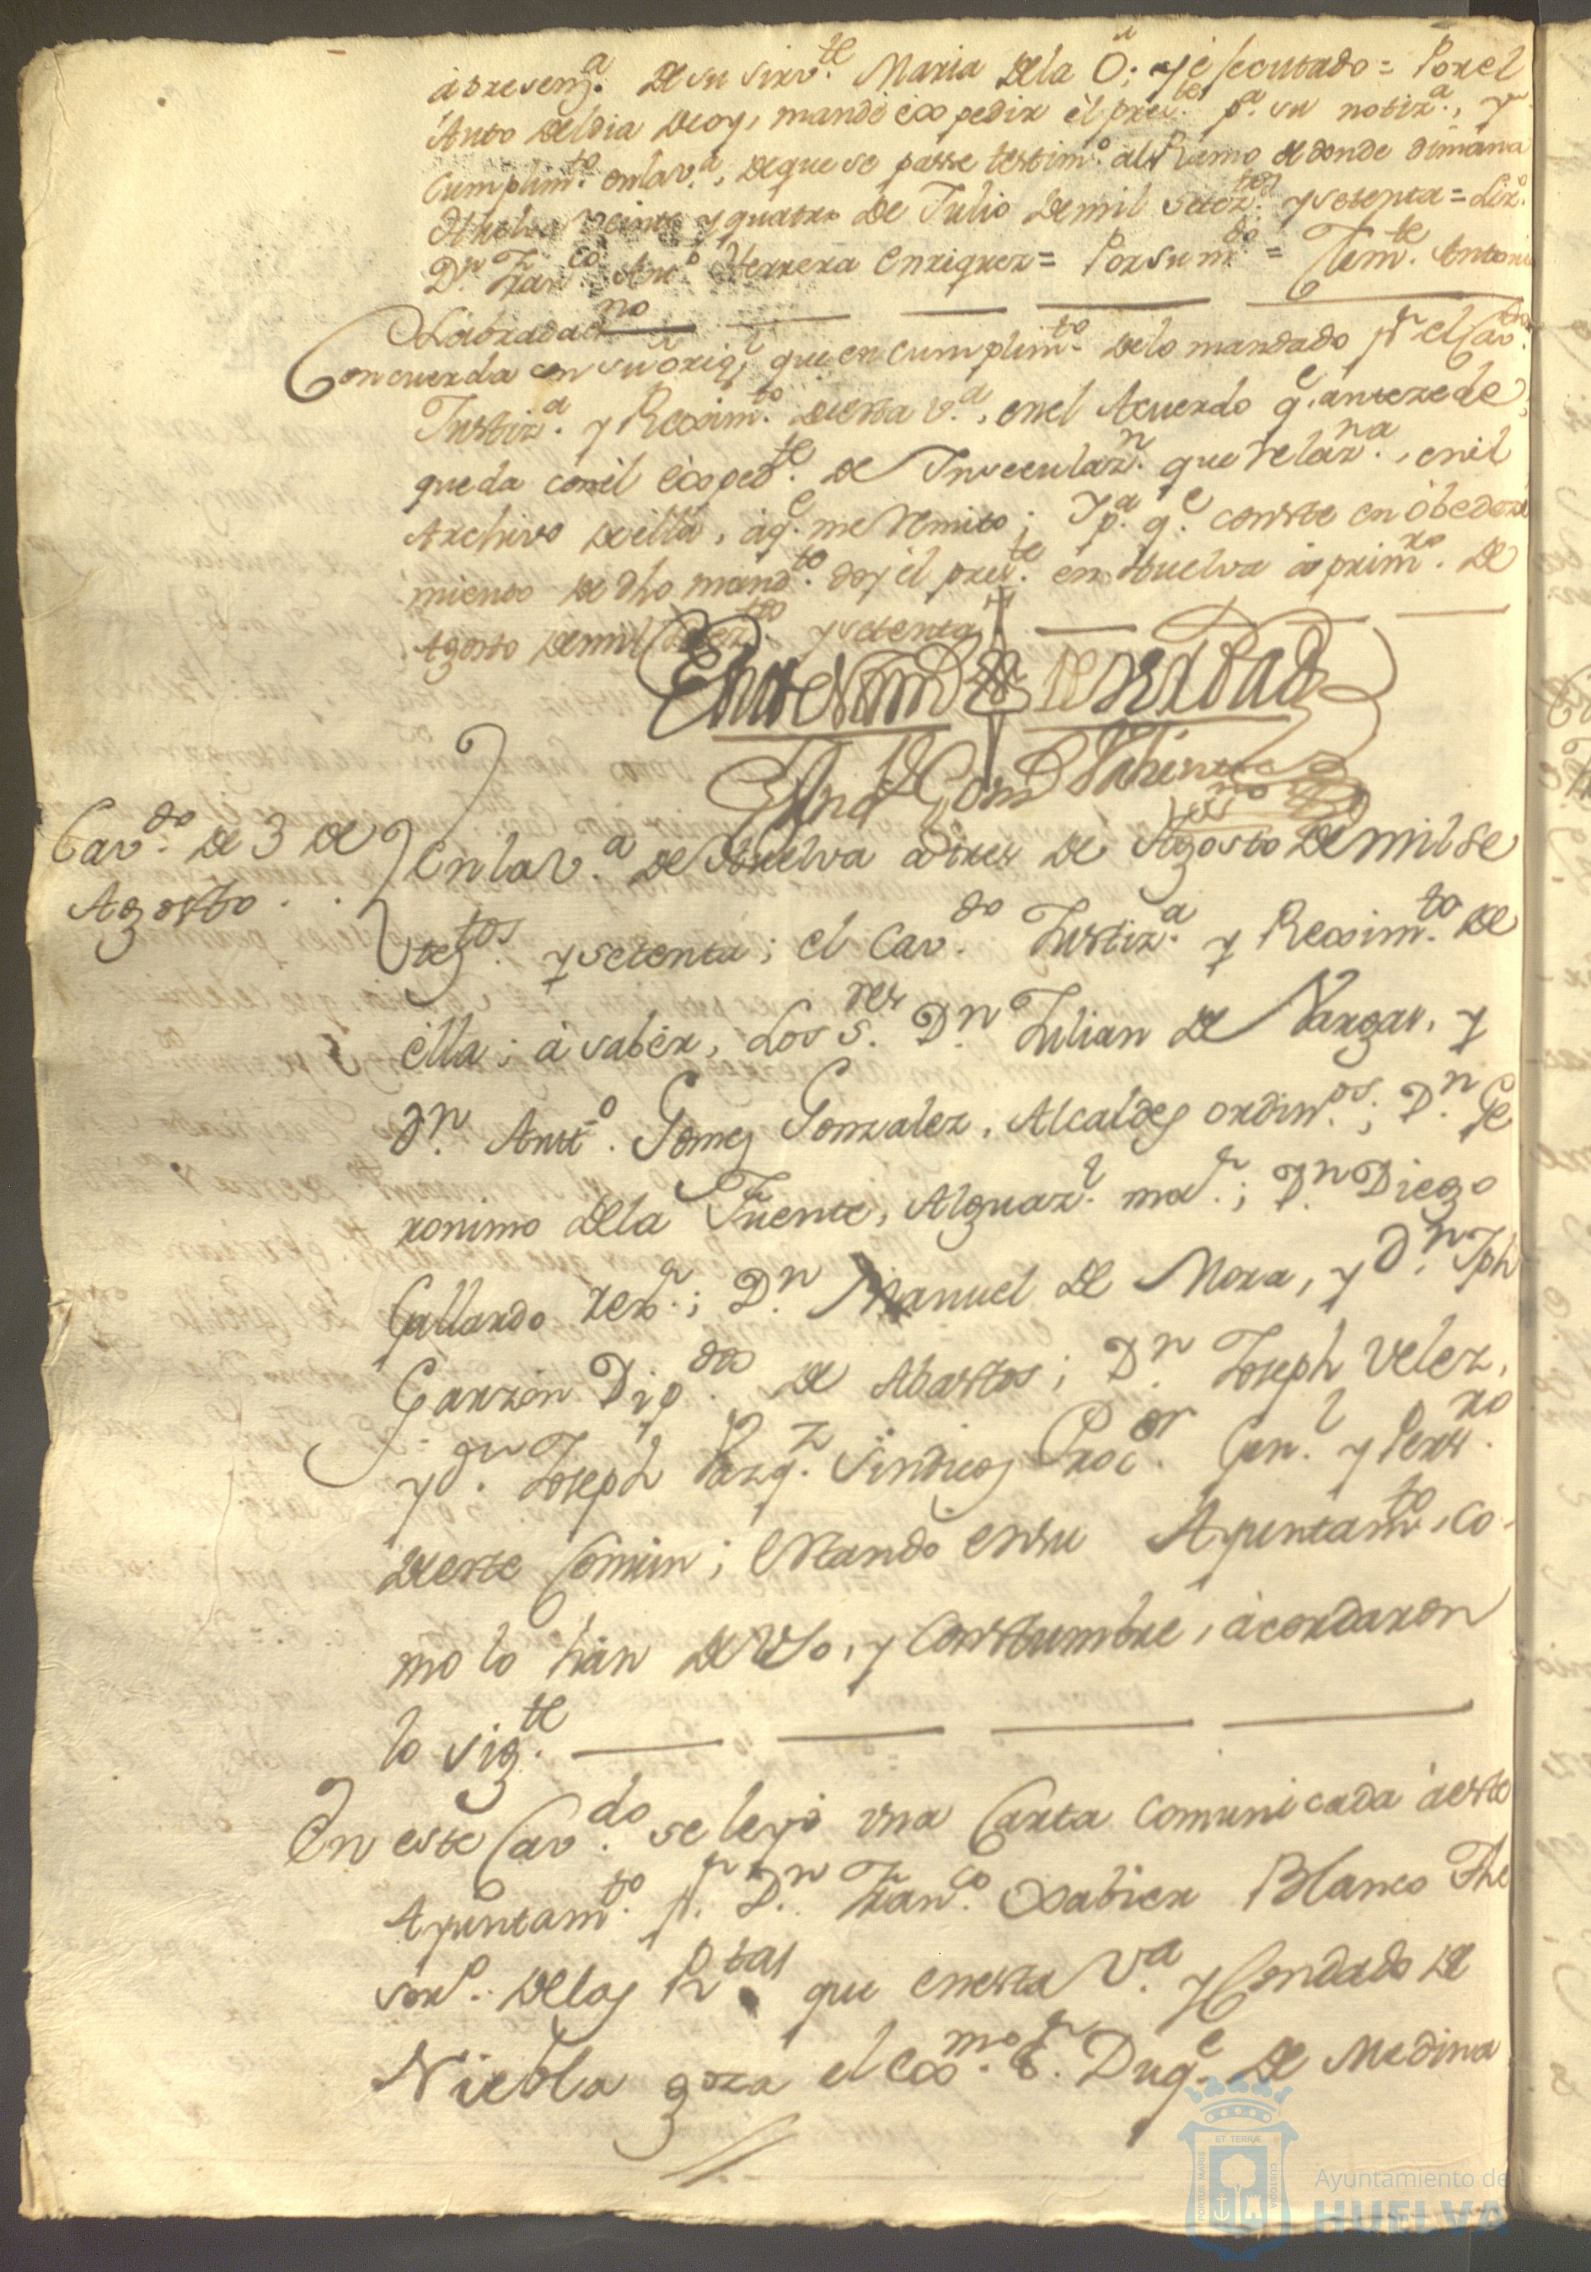 à presenz.ª de su sirv.te Maria de la O; y è secutado = Por el
Auto del dia de oy, mandè expedir èl pres.te p.ª su notiz.ª, y
cumplim.to en la v.ª, de que se passe testim.º al Ramo de donde dimana
Huelva veinte y quatro de Julio de mil setez.tos y setenta = Liz.do
D.n Fran.co Ant.º Herrera Enriquez = Por su m.do = Tem.te Antonio
Labrada es.no
Concuerda con su òrig.l que en cumplim.to de lo mandado p.r el Cav.do
Justiz.ª y Rexim.to de esta v.ª, en el Acuerdo q.e antezede,
queda con el èxped.te de Inseculaz.n que relaz.na, en el
Archivo de èlla, à q.e me remito; Y p.ª q.e conste en òbedezi
miento de dho mand.to doy èl pres.te en Huelva à prim.ro de
Agosto de mil setez.tos y setenta
En testim.º de verdad
Cav.do de 3 de
Agosto . .
En la v.ª de Huelva à tres de Agosto de mil se
tez.tos y setenta; el Cav.do Justiz.ª y Rexim.to de
èlla; à saber, Los S.res D.n Julian de Vargas, y
D.n Ant.º Gomez Gonzalez, Alcaldes ordin.os; D.n Ge
ronimo de la Fuente, Alguaz.l ma.r; D.n Diego
Gallardo rex.r; D.n Manuel de Mora, y D.n Jph
Garzon Dip.dos de Abastos; D.n Joseph Velez,
y D.n Joseph Vazq.z Sindicos Proc.or Gen.l y Pers.ro
de este Comun; Estando en su Ayuntam.to, co-
mo lo han de Uso, y Costumbre, àcordaron
lo sig.te
En este Cav.do se leyò una Carta comunicada à este
Ayuntam.to p.r D.n Fran.co Xabier Blanco The
sor.º de las R.tas que en esta V.ª y Condado de
Niebla goza el Ex.mo S.r Duq.e de Medina
PORTUS MARIS
ET TERRÆ
CUSTODIA
Ayuntamiento de
HUELVA